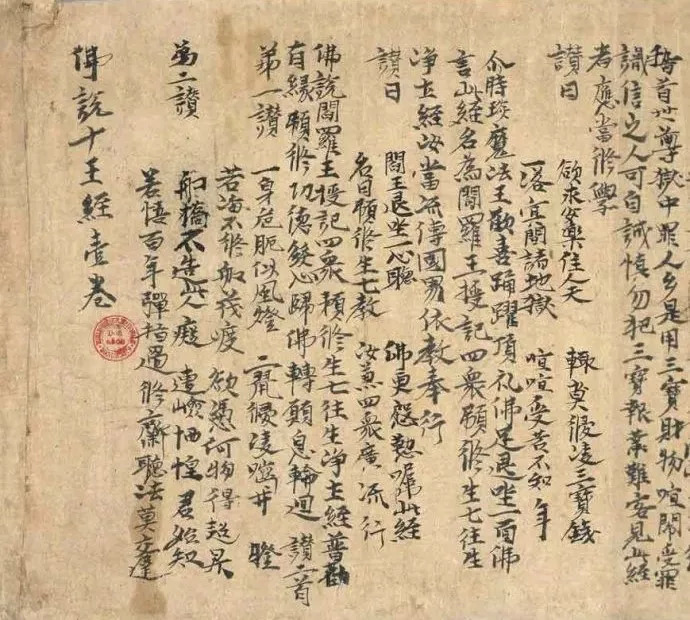 稽首世尊獄中罪人多是用三寶財物喧鬧受罪
識信之人可自誡慎勿犯三寶報業難容見此經
者應當修學
讚曰
欲求安樂住人天 輙莫侵凌三寶錢
一落冥間諸地獄 喧喧受苦不知年
尒時琰魔法王歡喜踊躍頂礼佛足退坐一面佛
言此經名為閻羅王授記四衆預修生七往生
净土經汝當流傳國界依教奉行
讚曰
閻王退坐一心聽 佛更慇懃囑此經
名曰預修生七教 汝兼四衆廣流行
佛說閻羅王授記四衆預修生七往生净土經普勸
有緣預修功德發心歸佛轉願息輪迴 讚二首
第一讚
一身危脆似風燈 二鼠侵凌嚙井
苦海不修船筏度 欲憑何物得超昇
第二讚
船橋不造此人癡 遭嶮恓惶君始知
若悟百年彈指過 修齋聽法莫交遲
佛說十王經壹卷